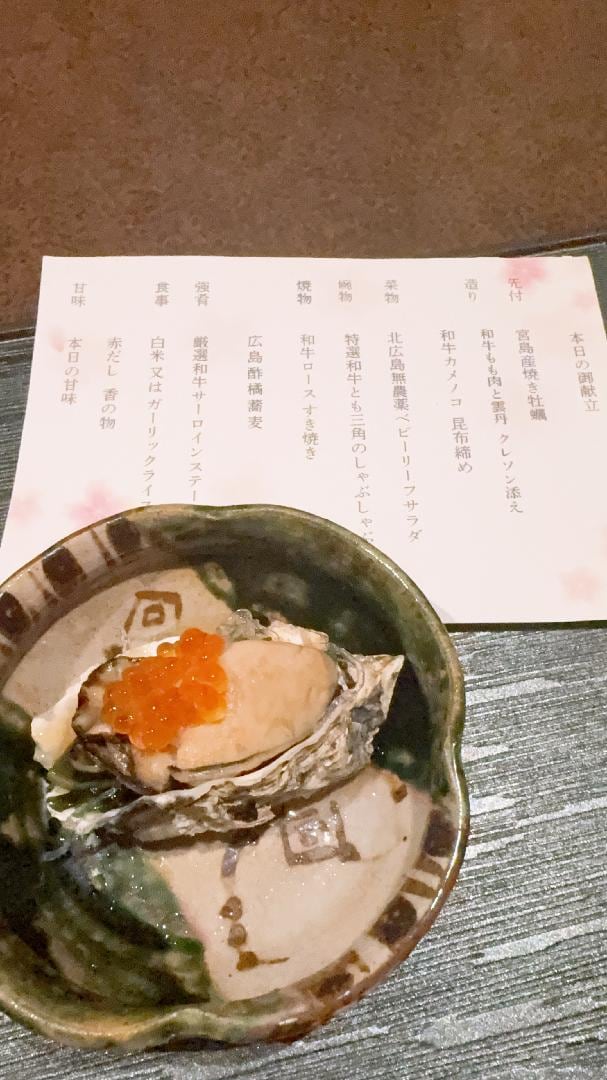 本日の御献立
先付 宮島産焼き牡蠣
和牛もも肉と雲丹 クレソン添え
造り 和牛カメノコ 昆布締め
菜物 北広島無農薬ベビーリーフサラダ
椀物 特選和牛とも三角のしゃぶしゃぶ
焼物 和牛ロースすき焼き
広島酢橘蕎麦
強肴 厳選和牛サーロインステー
食事 白米又はガーリックライス
赤だし 香の物
甘味 本日の甘味